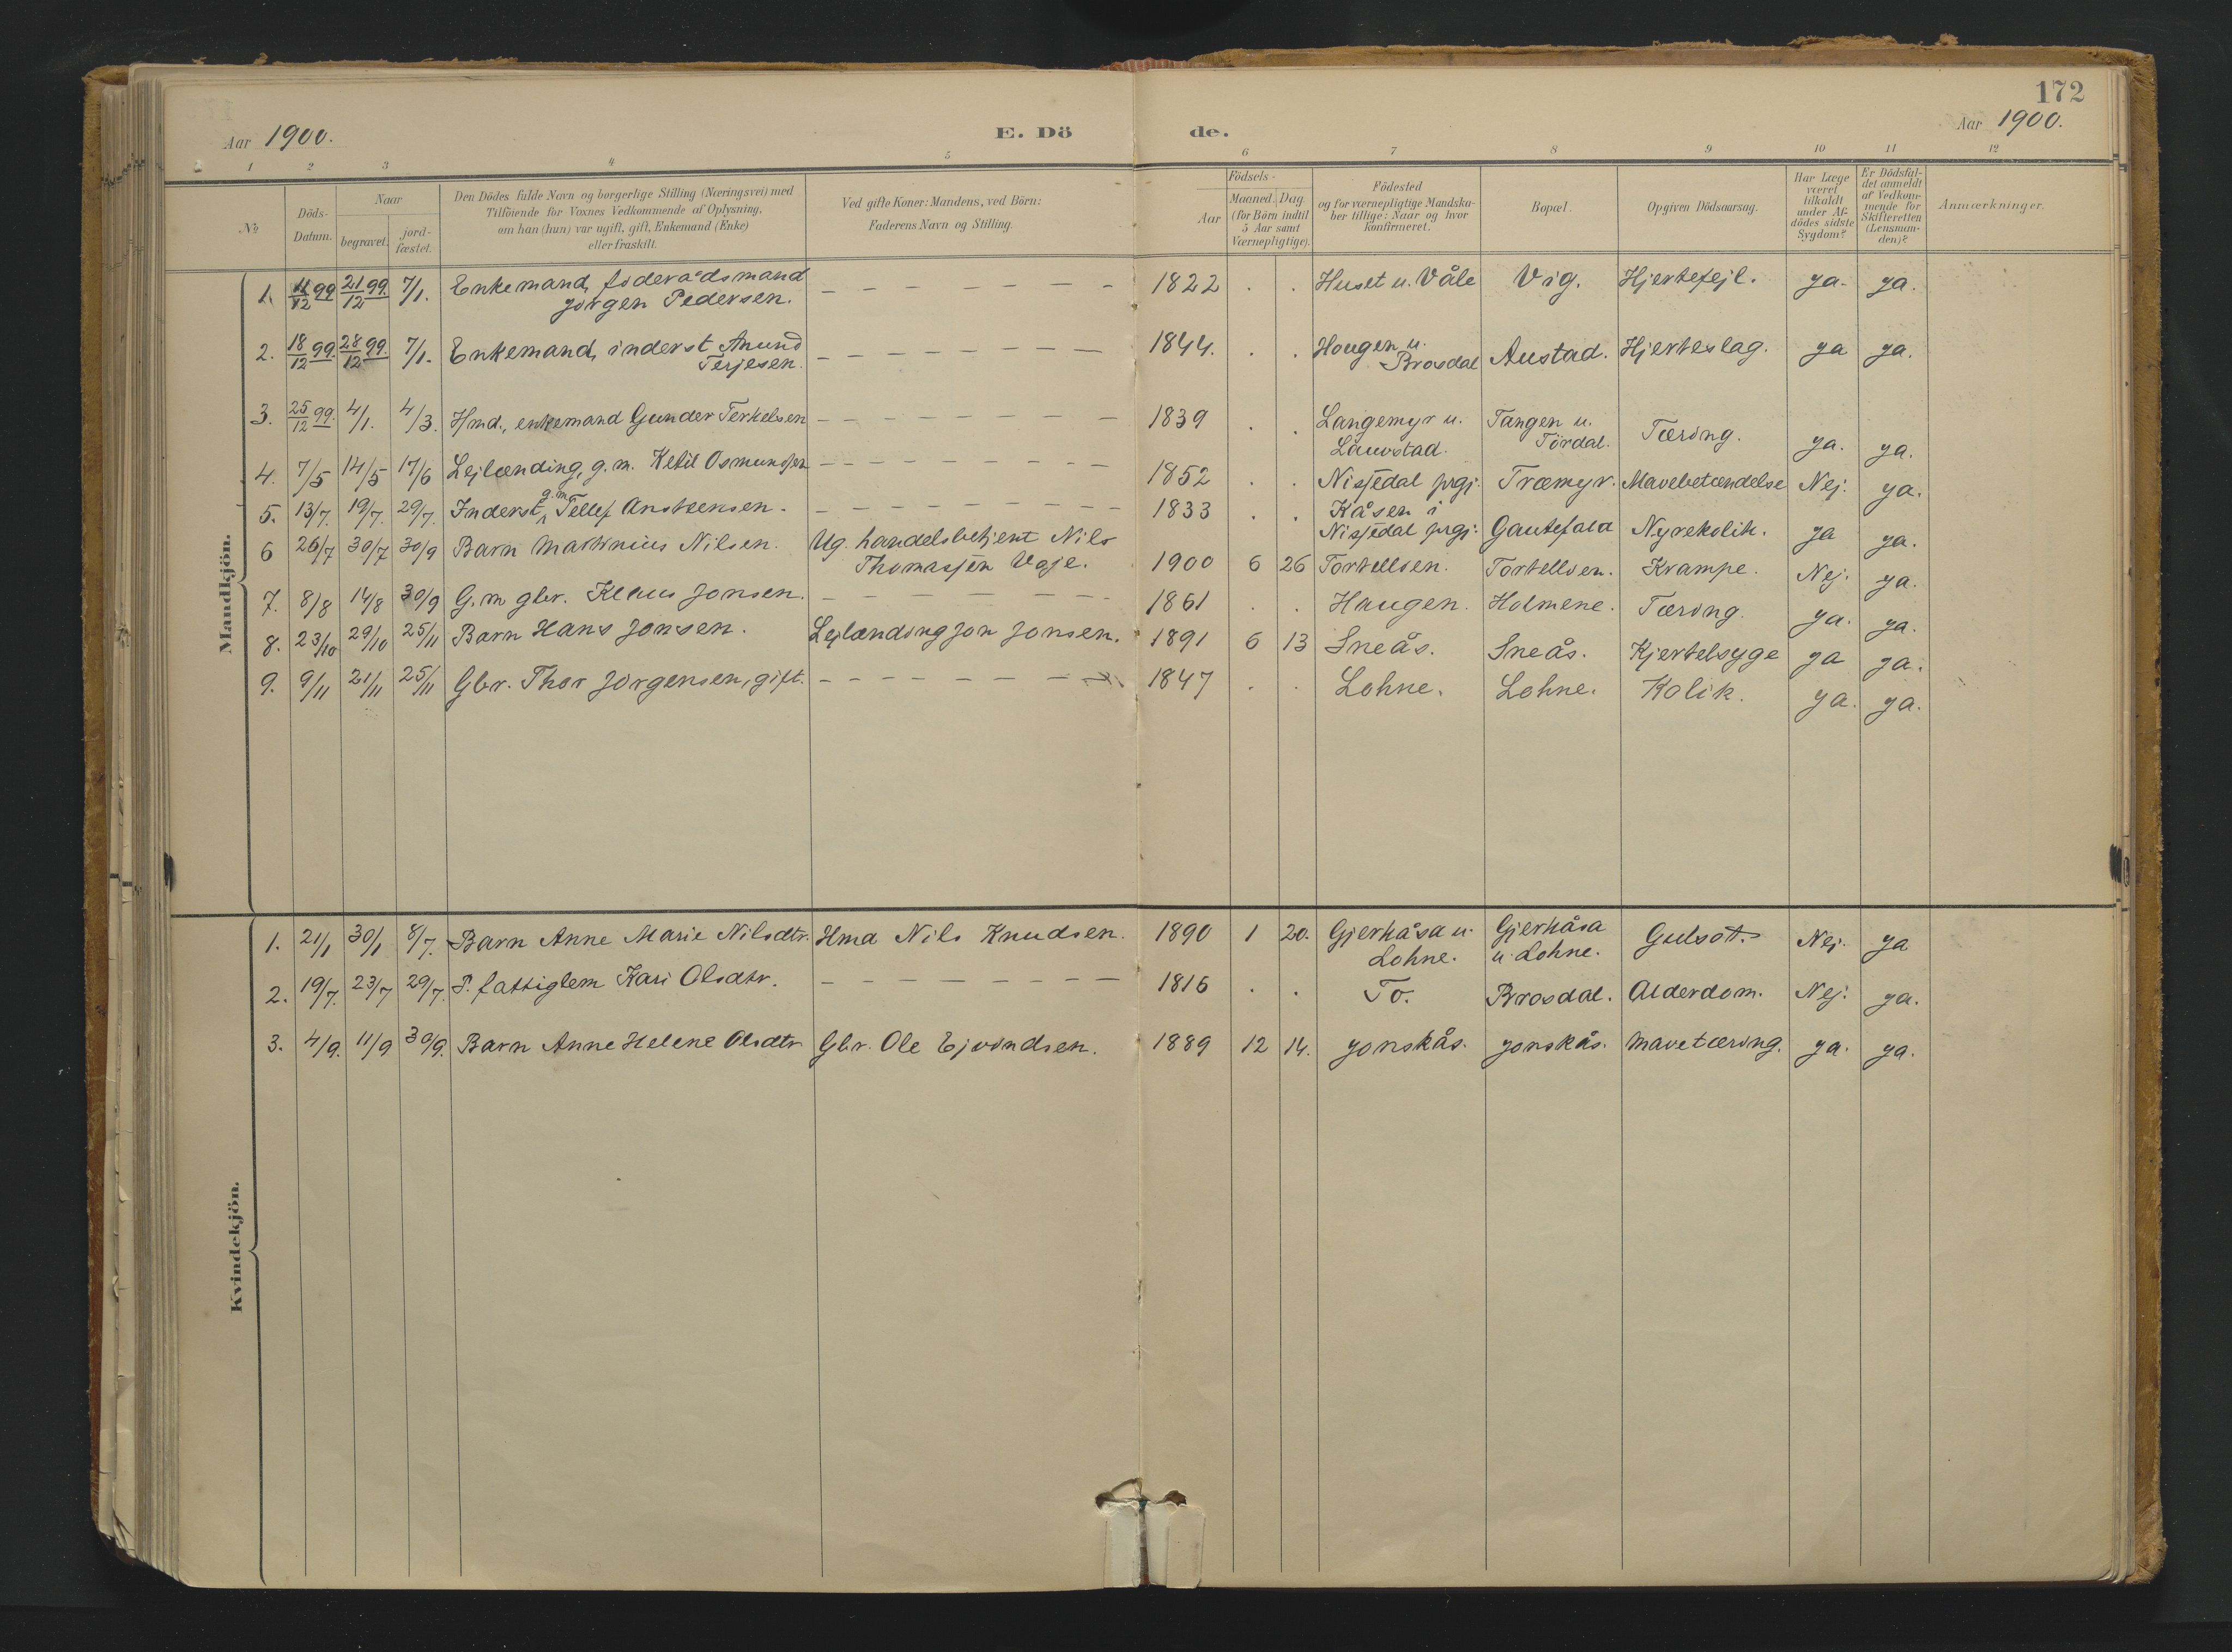 172
Aar 1900.
E. Dö
de.
Aar 1900.
1 2 3 4 5 6 7 8 9 10 11 12
№
Döds-
Datum.
Naar
begravet.
jord-
fæstet.
Den Dödes fulde Navn og borgerlige Stilling (Næringsvei) med
Tilföiende for Voxnes Vedkommende af Oplysning,
om han (hun) var ugift, gift, Enkemand (Enke)
eller fraskilt.
Ved gifte Koner: Mandens, ved Börn:
Faderens Navn og Stilling.
Födsels-
Aar
Maaned. Dag.
(for Börn indtil
5 Aar samt
Værnepligtige).
Födested
og for værnepligtige Mandska-
ber tillige: Naar og hvor
konfirmeret.
Bopæl.
Opgiven Dödsaarsag.
Har Læge
været
tilkaldt
under Af-
dödes sidste
Sygdom?
Er Dödsfal-
det anmeldt
af Vedkom-
mende for
Skifteretten
(Lensman-
den)?
Anmærkninger.
Mandkjön.
1. 11/12 99 21/12 99. 7/1. Enkemand, föderådsmand
Jörgen Pedersen. – – – – – – – 1822 . . Huset u. Våle Vig. Hjertefejl. ja. ja.
2. 18/12 99. 28/12 99. 7/1. Enkemand, inderst Anund
Terjesen. – – – – – – – 1844. . . Hougen u.
Brosdal Austad. Hjerteslag. ja ja.
3. 25/12 99. 4/1. 4/3. Hmd., enkemand Gunder Terkelsen – – – – – – – 1839 . . Langemyr u.
Lauvstad. Tangen u.
Tördal. Tæring. ja. ja.
4. 7/5 14/5 17/6 Lejlænding, g. m. Ketil Osmundsen – – – – – – – 1852 . . Nissedal prgj. Træmyr. Mavebetændelse Nej. ja.
5. 13/7. 19/7. 29/7. Inderst, g.m. Tellef Anstensen. – – – – – – – 1833 . . Kåsen i
Nissedal prgj. Gautefald Nyrekolik. ja ja.
6 26/7 30/7 30/9 Barn Martinius Nilsen. Ug. handelsbetjent Nils
Thomassen Vaje. 1900 6 26 Tortellien. Tortellien. Krampe. Nej. ja.
7. 8/8 14/8 30/9 G. m gbr. Klaus Jonsen. – – – – – – – 1861 . . Haugen. Holmene. Tæring. ja. ja.
8. 23/10 29/10 25/11 Barn Hans Jonsen. Lejlænding Jon Jonsen. 1891 6 13 Sneås. Sneås. Kjertelsyge ja ja.
9. 9/11 21/11 25/11 Gbr. Thor Jörgensen, gift. – – – – – – – 1847 . . Lohne. Lohne. Kolik. ja. ja.
Kvindekjön.
1. 21/1 30/1 8/7. Barn Anne Marie Nilsdtr. Hmd Nils Knudsen. 1890 1 20. Gjerkåsa u.
Lohne. Gjerkåsa
u. Lohne. Gulsott. Nej. ja
2. 19/7. 23/7 29/7. P. fattiglem Kari Olsdtr. – – – – – – – 1816 . . To. Brosdal. Alderdom. Nej. ja.
3. 4/9. 11/9 30/9. Barn Anne Helene Olsdtr Gbr. Ole Ejvindsen. 1889 12 14. Jonskås. Jonskås. Mavetæring. ja. ja.